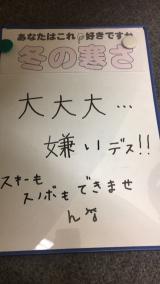 あなたはこれ好きですか
冬の寒さ
大大大…
嫌いデス!!
スキーも
スノボもできませ
ん